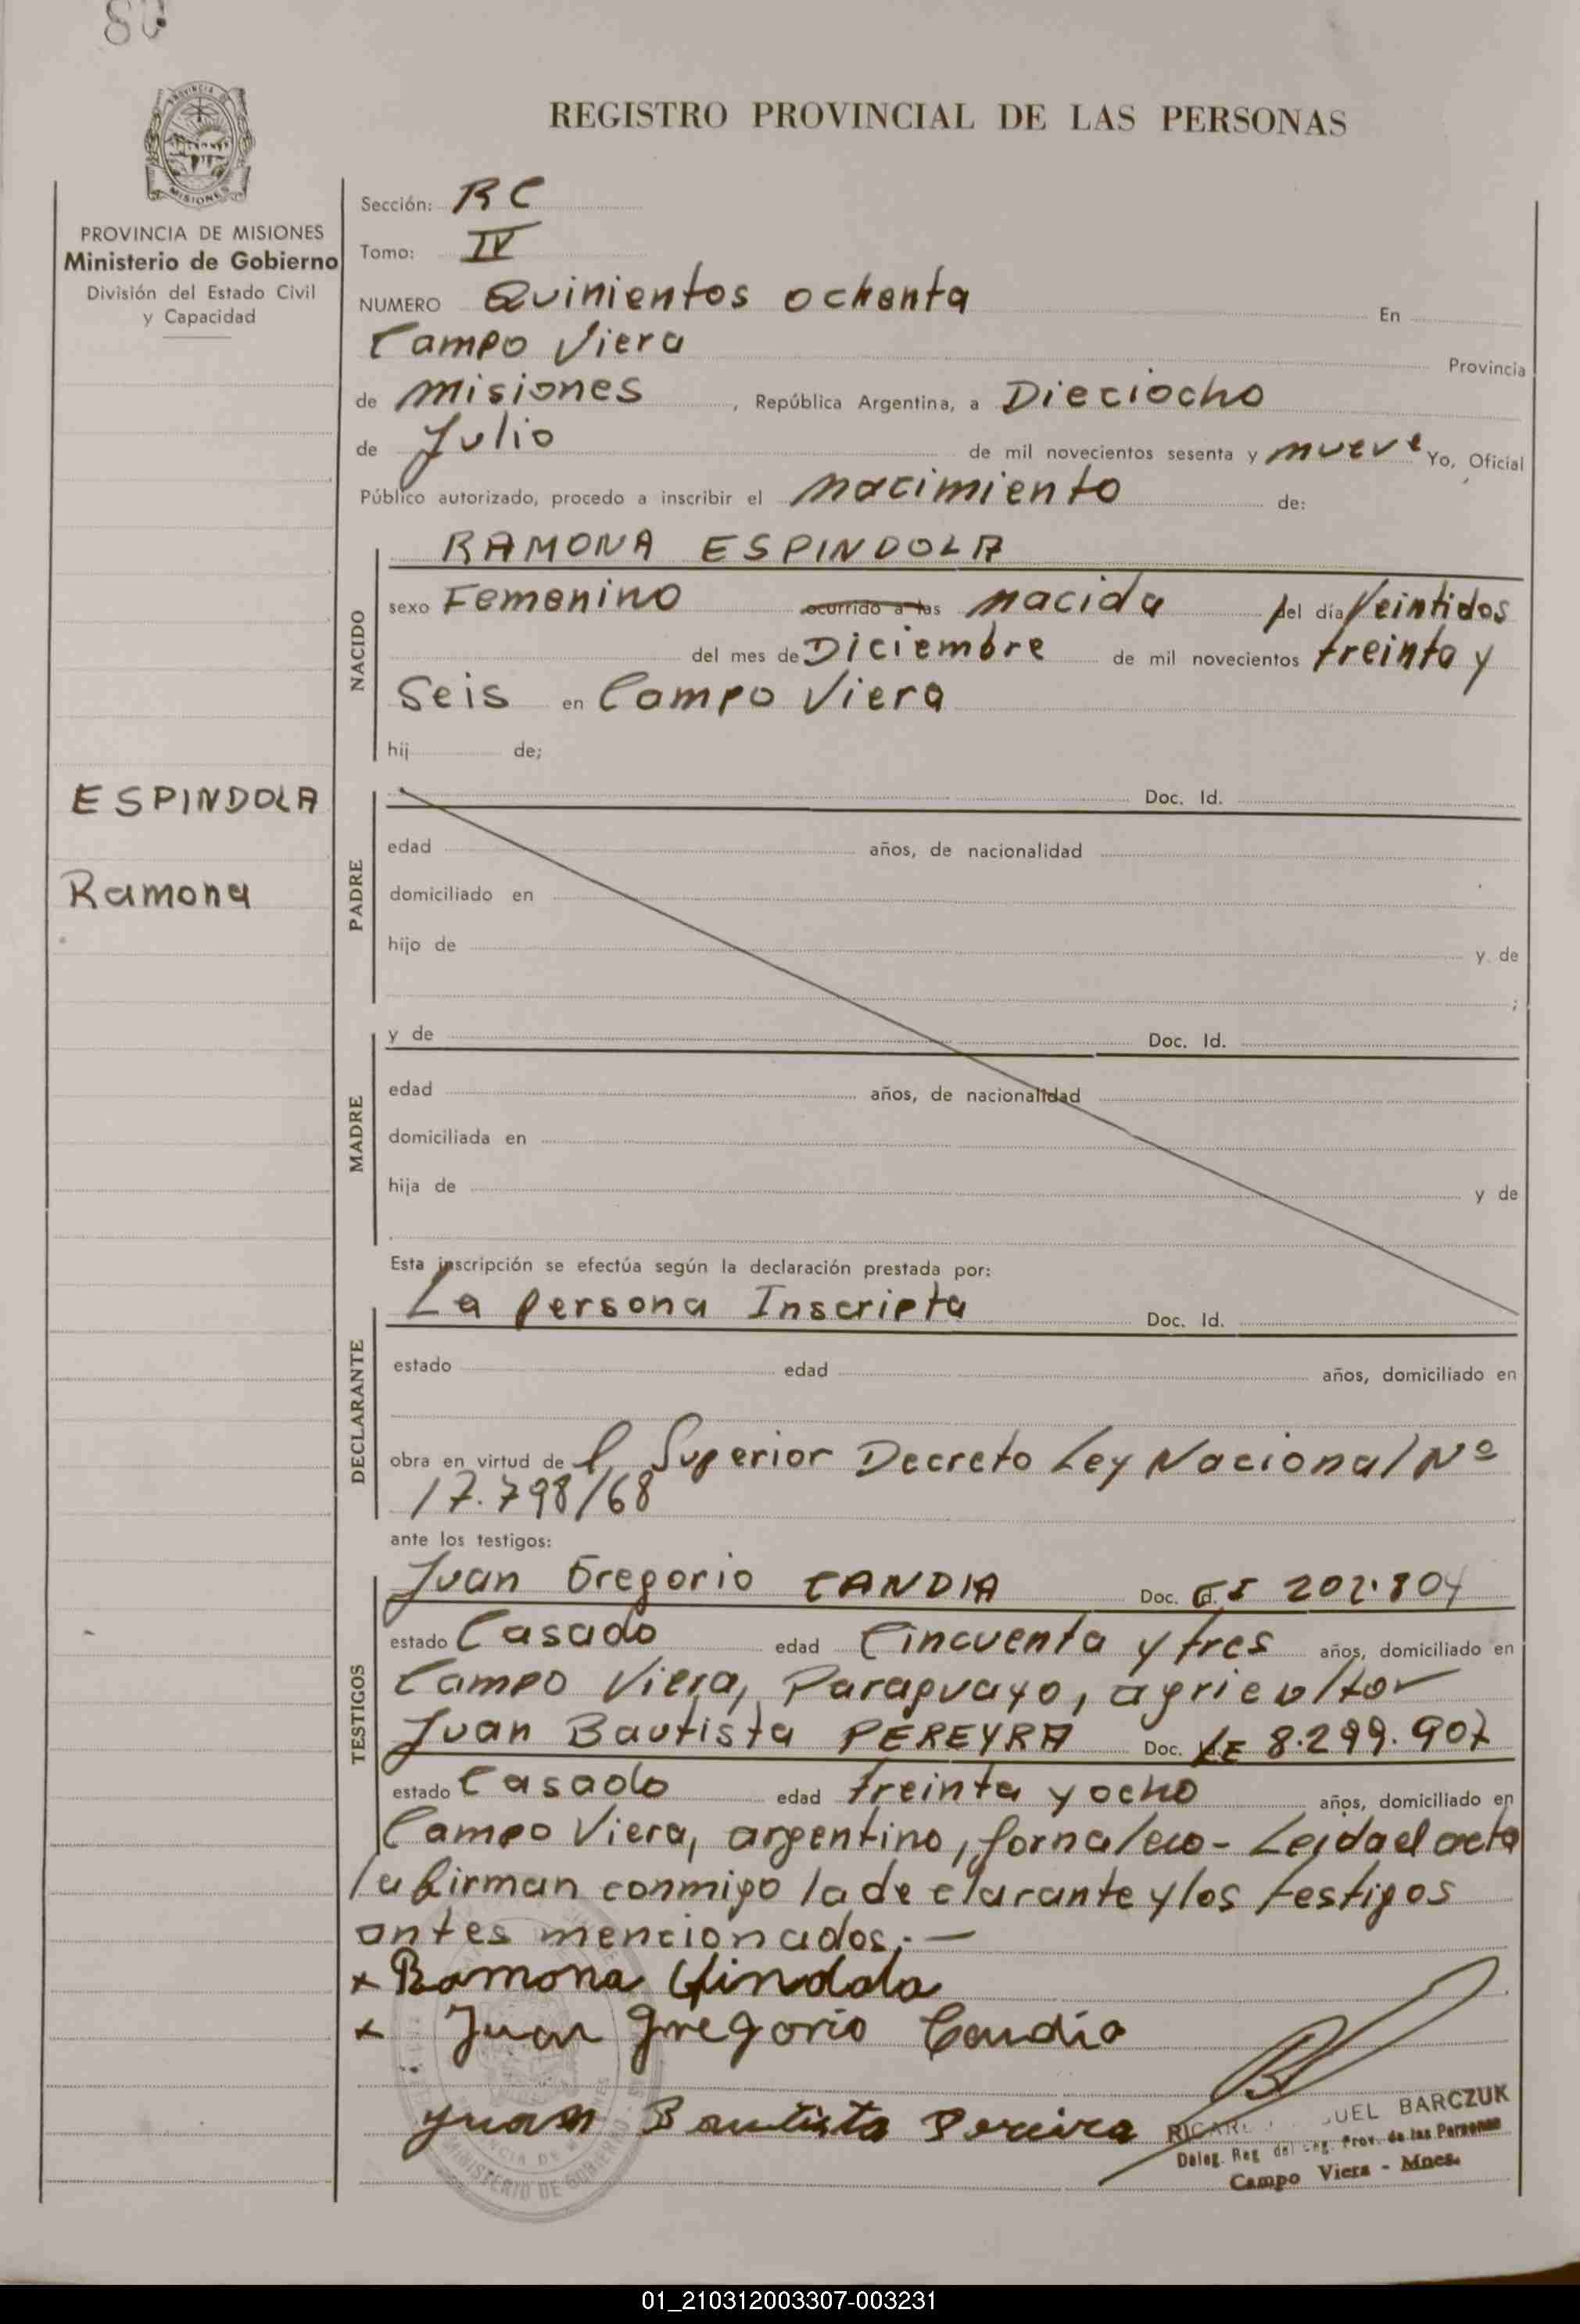 80
REGISTRO PROVINCIAL DE LAS PERSONAS
PROVINCIA DE
MISIONES
PROVINCIA DE MISIONES
Ministerio de Gobierno
División del Estado Civil
y Capacidad
ESPINDOLA
Ramona
Sección: RC
Tomo: IV
NUMERO Quinientos ochenta En
Campo Viera Provincia
de misiones, República Argentina, a Dieciocho
de Julio de mil novecientos sesenta y nueve Yo, Oficial
Público autorizado, procedo a inscribir el nacimiento de:
NACIDO
RAMONA ESPINDOLA
sexo Femenino ocurrido a las nacida del día Veintidos
del mes de Diciembre de mil novecientos treinta y
Seis en Campo Viera
hij de;
PADRE
Doc. Id.
edad años, de nacionalidad
domiciliado en
hijo de y de
;
MADRE
y de Doc. Id.
edad años, de nacionalidad
domiciliada en
hija de y de
Esta inscripción se efectúa según la declaración prestada por:
DECLARANTE
La persona Inscripta Doc. Id.
estado edad años, domiciliado en
obra en virtud de l Superior Decreto Ley Nacional Nº
17.798/68
ante los testigos:
TESTIGOS
Juan Gregorio CANDIA Doc. 202.804
estado Casado edad Cincuenta y tres años, domiciliado en
Campo Viera, Paraguayo, agricultor
Juan Bautista PEREYRA Doc. LE 8.299.907
estado Casado edad treinta y ocho años, domiciliado en
Campo Viera, argentino, Leida el acta
la firman conmigo la declarante y los testigos
antes mencionados.-
x Ramona
x Juan Gregorio Candia
Juan Bautista Pereira
BARCZUK
Prov. de las Personas
Campo Viera - Mnes.
MINISTERIO DE GOBIERNO
01_210312003307-003231